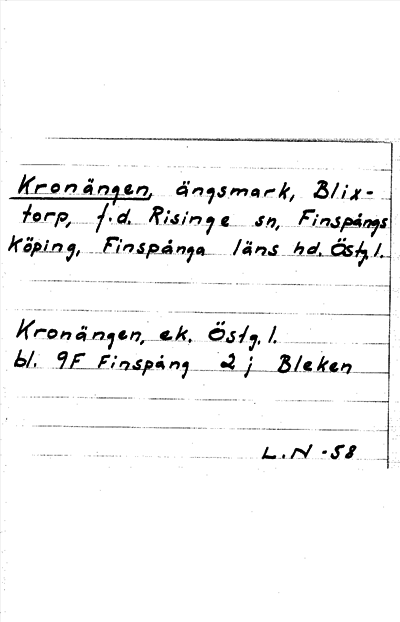 Kronängen, ängsmark, Blix-
torp, f.d. Risinge sn, Finspångs
Köping, Finspånga läns hd. Östg.l.
Kronängen, ek. Östg.l.
bl. 9F Finspång 2j Bleken
L.N -58